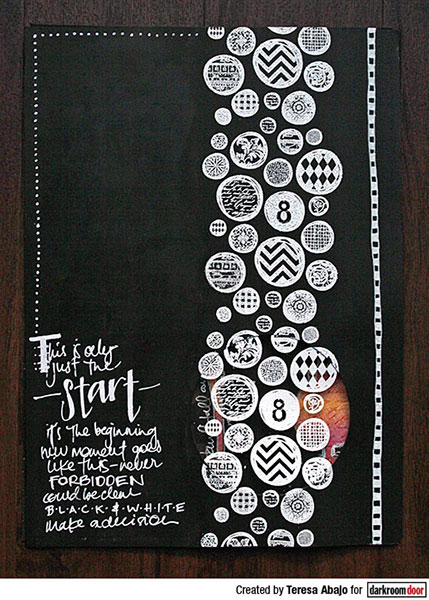 8
8
This is only
just the
start
it's the beginning
new moment goes
like this-never
FORBIDDEN
could be clear
B.L.A.C.K & W.H.I.T.E
make a decision
Created by Teresa Abajo for darkroomdoor